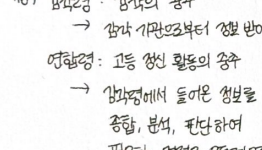 감각령 : 감각의 중추
→ 감각 기관으로부터 정보 받아
연합령 : 고등 정신 활동의 중추
→ 감각령에서 들어온 정보를
종합, 분석, 판단하여